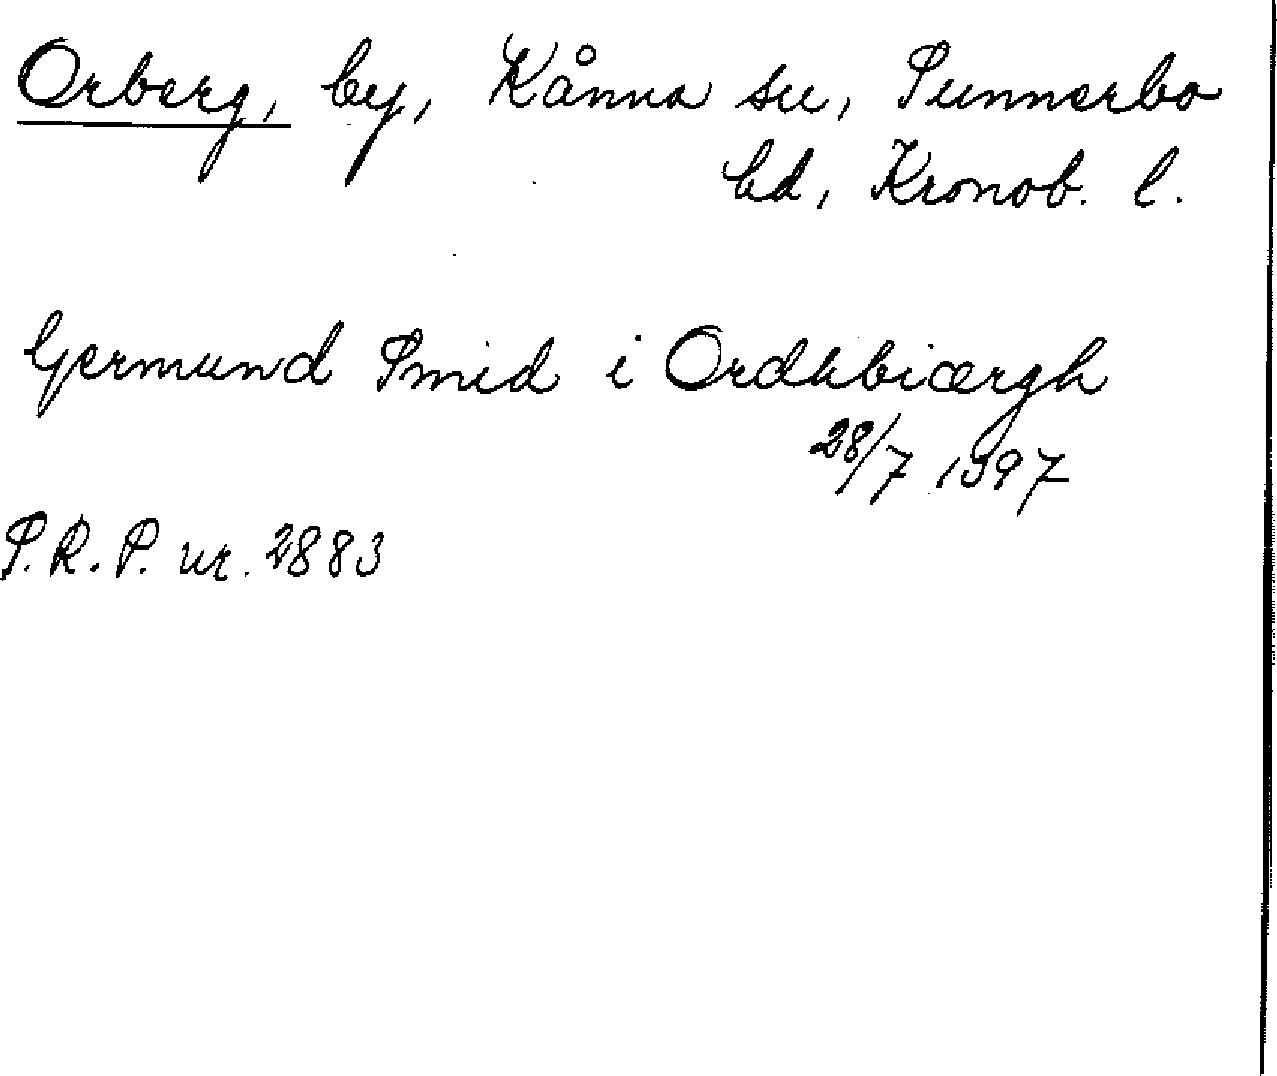 Orberg, by, Kånna sn, Sunnerbo
hd, Kronob. l.
Germund Smid i Ordhbiærgh
28/7 1397
S.R.P. nr. 2883